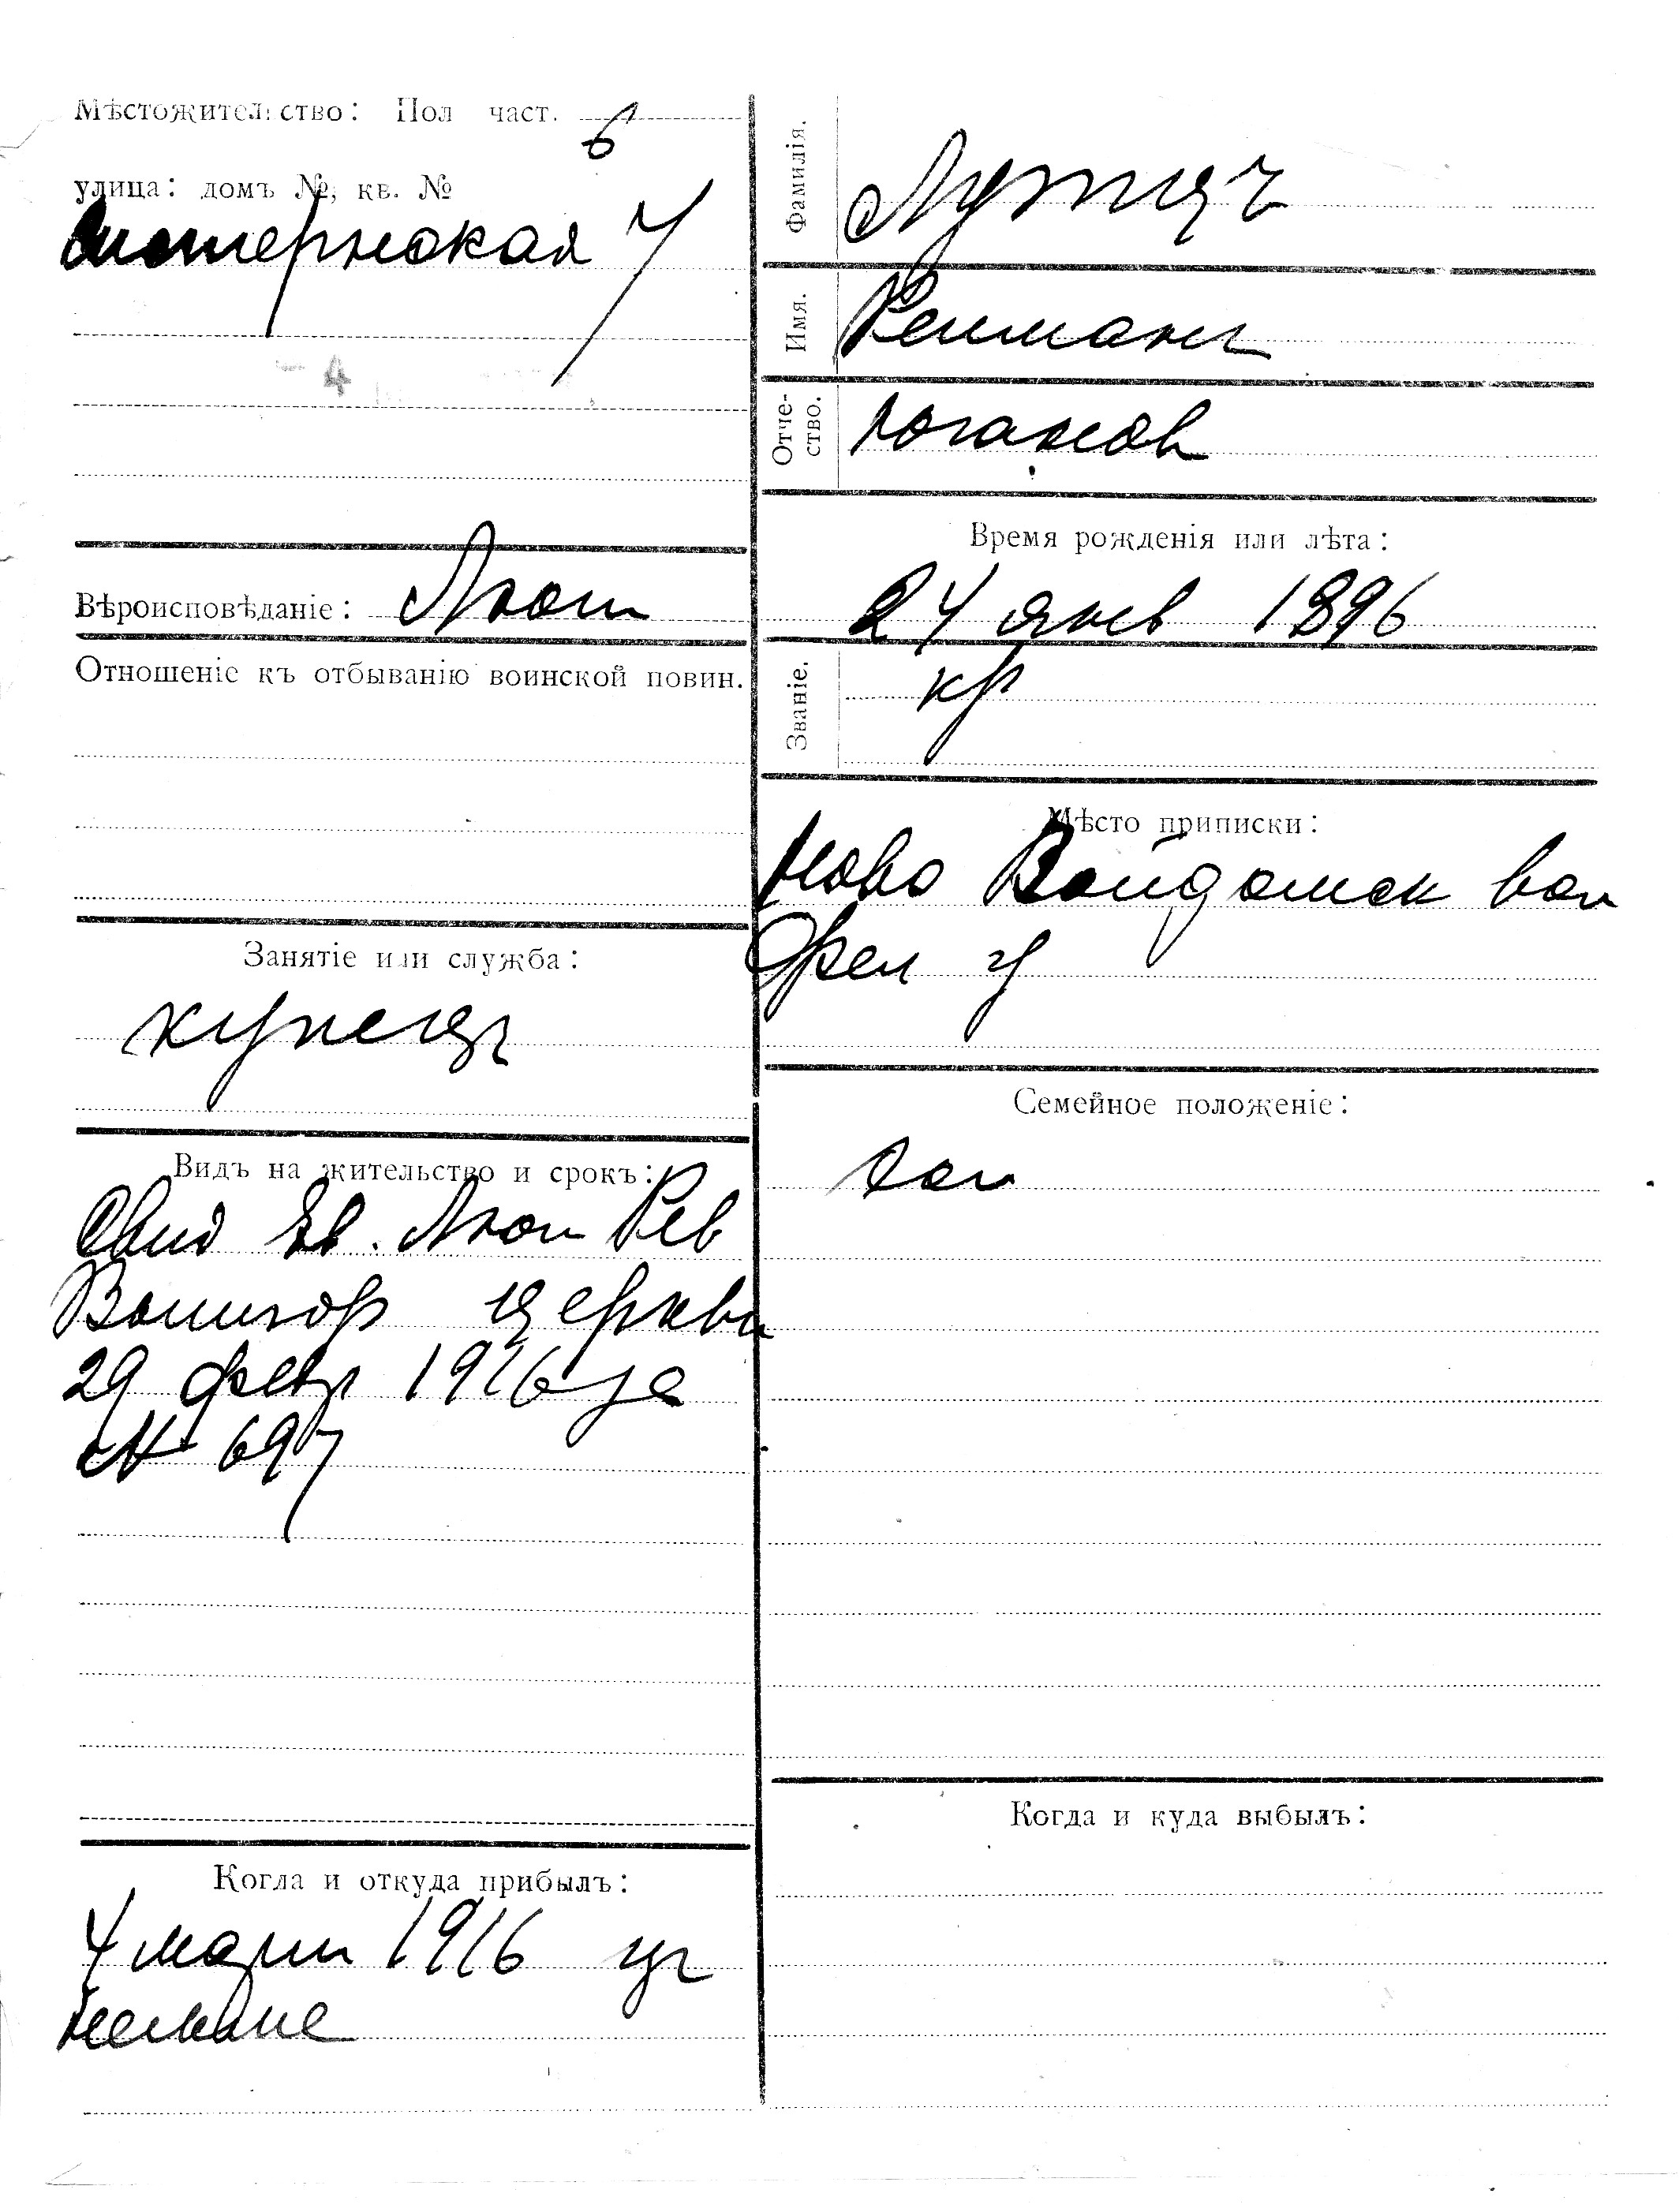 Мѣстожительство: Пол част. 6
улица: домъ №, кв. №
Систернская 7
4
Вѣроисповѣданіе: Лют
Отношеніе къ отбыванію воинской повин.
Занятіе или служба:
купецъ
Видъ на жительство и срокъ:
Свид Ев. Лют Рев
Вышгор церкви
29 февр 1916 за
№ 697
Когда и откуда прибылъ:
4 март 1916 изъ
Фамилія.
Лутцъ
Имя.
Германъ
Отче-
ство.
Юганов
Время рожденія или лѣта:
24 янв 1896
Званіе.
кр
Мѣсто приписки:
Ново Вайдомск вол
Фел у
Семейное положеніе:
хол
Когда и куда выбылъ: